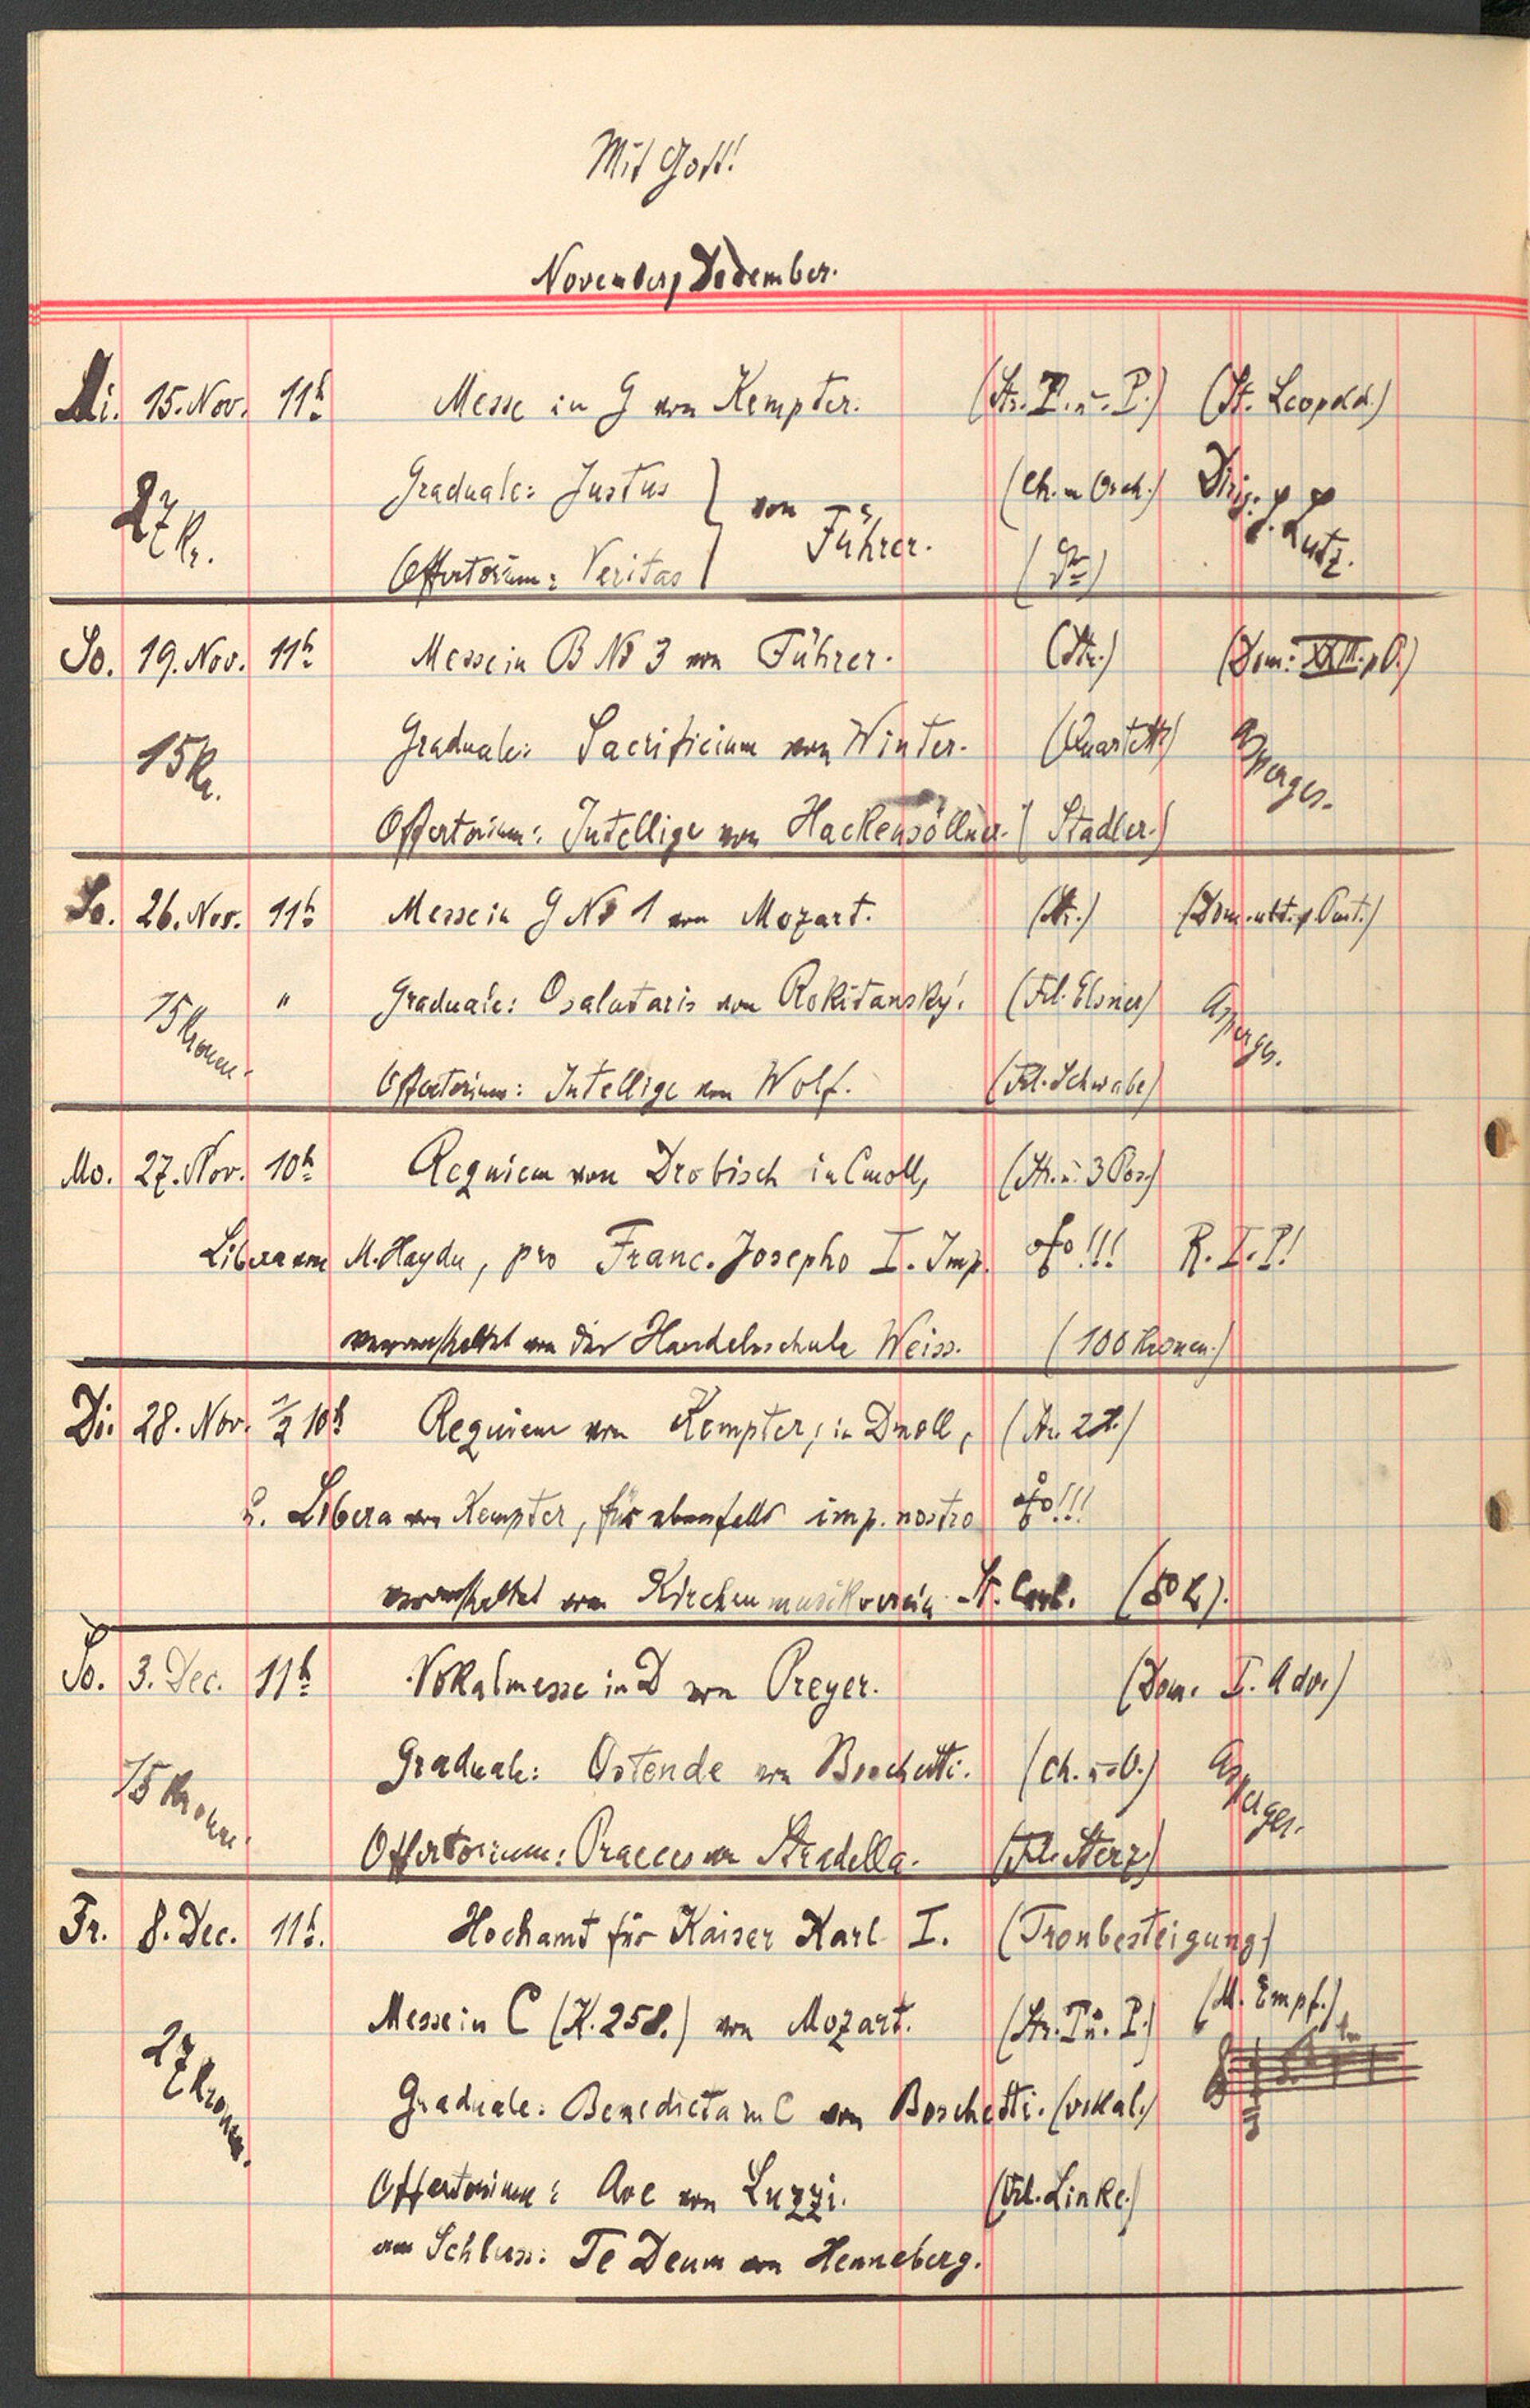 Mit Gott!
November, Dezember.
Mi. 15. Nov. 11h Messe in G von Kempter. (Str. T. u. P.) (St. Leopold.)
27 Kr. Graduale: Justus } von Führer. (Ch. u Orch.) Dirig. J. Lutz.
Offertorium: Veritas (dto)
So. 19. Nov. 11h Messe in B No 3 von Führer. (Str.) (Dom: XXIII. p P.)
15 Kr. Graduale: Sacrificium von Winter. (Quartett) Asperges.
Offertorium: Intellige von Hackensöllner. (Stadler.)
So. 26. Nov. 11h Messe in G No 1 von Mozart. (Str.) (Dom. ult. p Pent.)
15 Kronen. " Graduale: O salutaris von Rokitansky. (Frl. Elsner) Asperges.
Offertorium: Intellige von Wolf. (Frl. Schwabe)
Mo. 27. Nov. 10h Requiem von Drobisch in C moll, (Str. u. 3 Pos.)
Libera von M. Haydn, pro Franc. Josepho I. Imp. !!! R. I. P!
veranstaltet von der Handelsschule Weiss. (100 Kronen.)
Di. 28. Nov. 1/2 10h Requiem von Kempter, in D moll, (Str. 2 T.)
u. Libera von Kempter, für ebenfalls imp. nostro !!!
veranstaltet vom Kirchenmusikverein St. Carl. (80 K).
So. 3. Dec. 11h Vokalmesse in D von Preyer. (Dom. I. Adv.)
15 Kronen. Graduale: Ostende von Boschetti. (Ch. u O.) Asperges.
Offertorium: Praeces von Stradella. (Frl. Sterz)
Fr. 8. Dec. 11h. Hochamt für Kaiser Karl I. (Tronbesteigung)
Messe in C (K. 258.) von Mozart. (Str. T u. P.) (M. Empf.)
27 Kronen. Graduale: Benedicta in C von Boschetti. (vokal.)
Offertorium: Ave von Luzzi. (Frl. Linke.)
am Schluss: Te Deum von Henneberg.